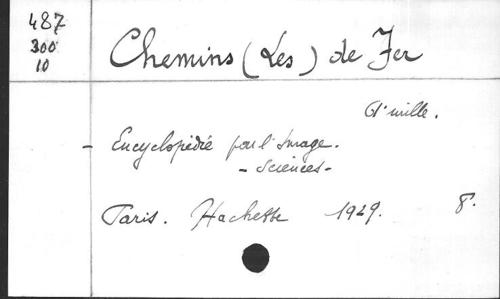 487
300
10
Chemins (Les) de Fer
mille.
- Encyclopédie par l'Image.
- Sciences -
Paris. Hachette 1929. 8°.